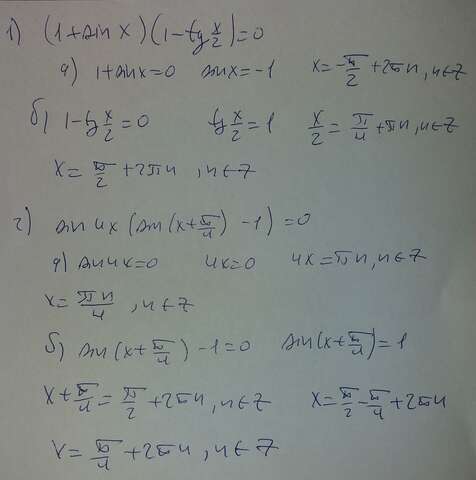 1) (1+sin x)(1-tg x/2)=0
а) 1+sin x=0 sin x=-1 x=-π/2+2πn, n∈Z
б) 1-tg x/2=0 tg x/2=1 x/2=π/4+πn, n∈Z
x=π/2+2πn, n∈Z
2) sin 4x (sin(x+π/4)-1)=0
а) sin 4x=0 4x=0 4x=πn, n∈Z
x=πn/4, n∈Z
б) sin(x+π/4)-1=0 sin(x+π/4)=1
x+π/4=π/2+2πn, n∈Z x=π/2-π/4+2πn
x=π/4+2πn, n∈Z